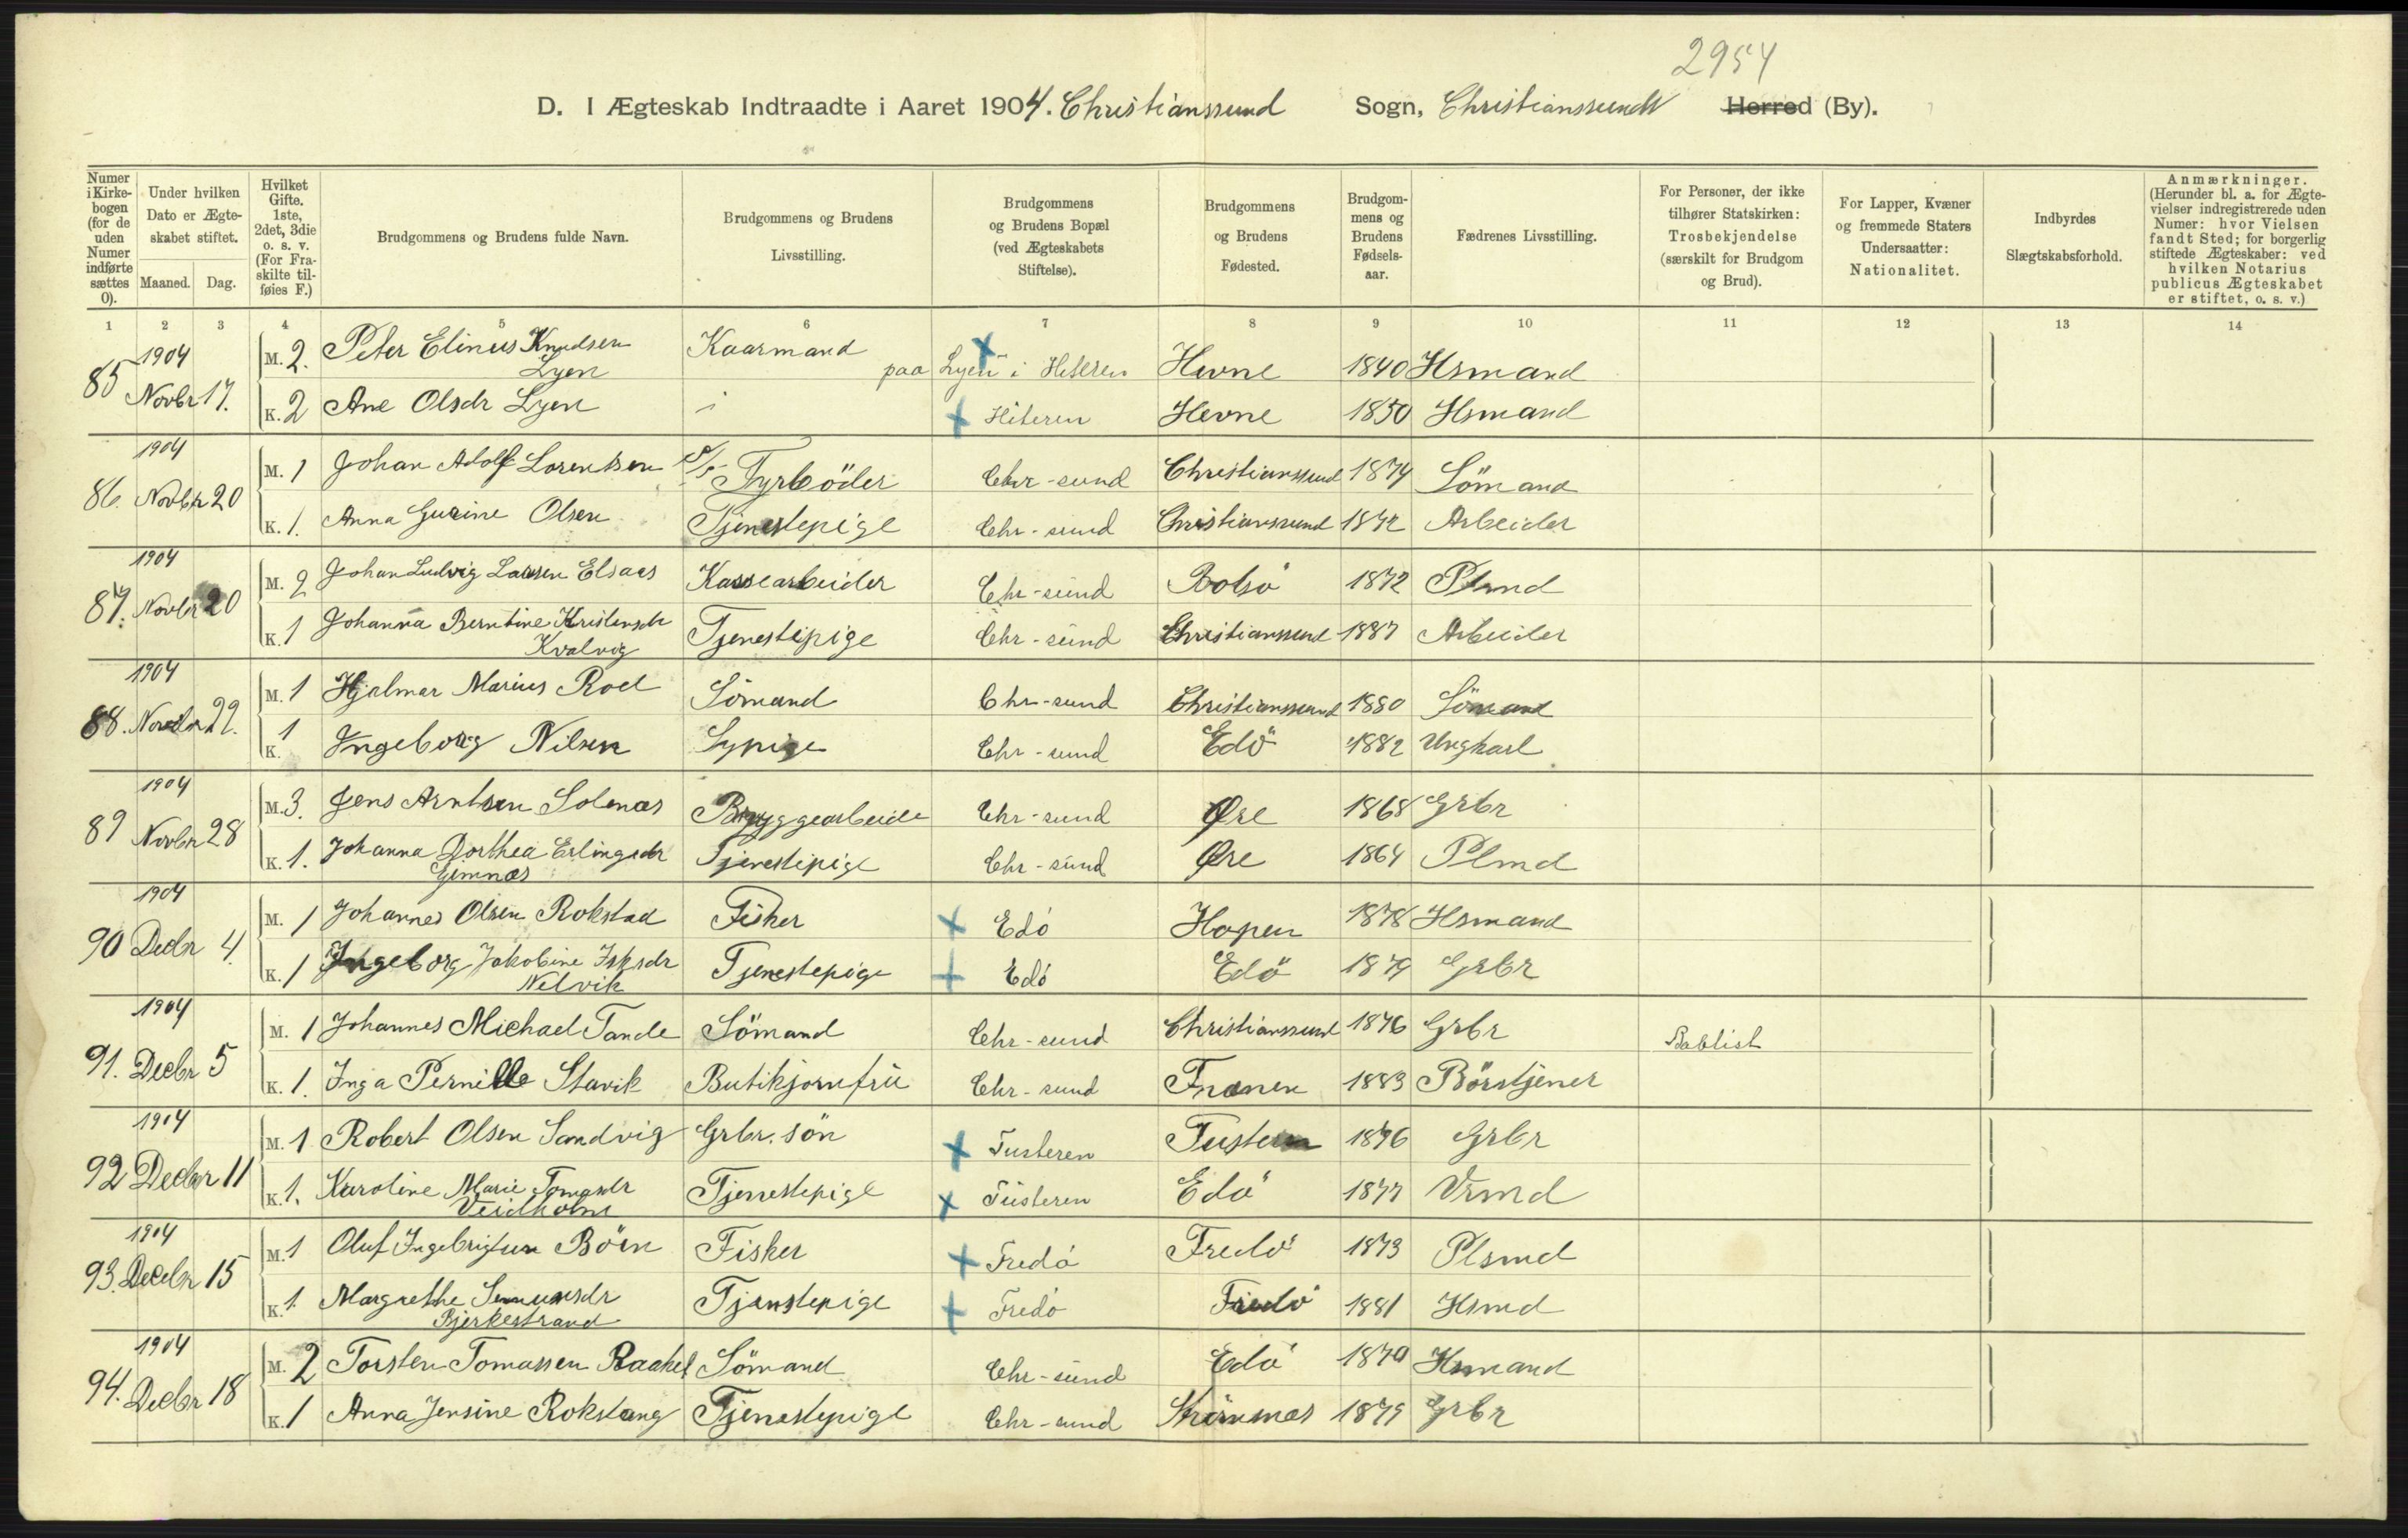 2954
D. I Ægteskab Indtraadte i Aaret 1904. Christianssund Sogn, Christianssunds Herred (By).
Numer i Kirkebogen (for de uden Numer indførte sættes 0).
Under hvilken Dato er Ægteskabet stiftet.
Maaned. Dag.
Hvilket Gifte. 1ste, 2det, 3die o. s. v. (For Fraskilte tilføies F.)
Brudgommens og Brudens fulde Navn.
Brudgommens og Brudens Livsstilling.
Brudgommens og Brudens Bopæl (ved Ægteskabets Stiftelse).
Brudgommens og Brudens Fødested.
Brudgommens og Brudens Fødselsaar.
Fædrenes Livsstilling.
For Personer, der ikke tilhører Statskirken: Trosbekjendelse (særskilt for Brudgom og Brud).
For Lapper, Kvæner og fremmede Staters Undersaatter: Nationalitet.
Indbyrdes Slægtskabsforhold.
Anmærkninger. (Herunder bl. a. for Ægtevielser indregistrerede uden Numer: hvor Vielsen fandt Sted; for borgerlig stiftede Ægteskaber: ved hvilken Notarius publicus Ægteskabet er stiftet, o. s. v.)
1 2 3 4 5 6 7 8 9 10 11 12 13 14
85 1904 Novbr 17. M. 2. Peter Elinus Knudsen Lyen Kaarmand paa Lyen i Hiteren Hevne 1840 Hsmand
K. 2 Ane Olsdr Lyen Hiteren Hevne 1850 Hsmand
86. 1904 Novbr 20 M. 1 Johan Adolf Lorentsen Fyrböder Chr-sund Christianssund 1874 Sömand
K. 1. Anna Gurine Olsen Tjenestepige Chr-sund Christianssund 1872 Arbeider
87. 1904 Novbr 20 M. 2 Johan Ludvig Larsen Elsaas Kassearbeider Chr-sund Bolsö 1872 Plsmd
K. 1 Johanna Berntine Kristensdr Kvalvig Tjenestepige Chr-sund Christianssund 1887 Arbeider
88. 1904 Novbr 22. M. 1 Hjalmar Marius Roel Sömand Chr-sund Christianssund 1880 Sömand
K. 1 Ingeborg Nilsen Sypige Chr-sund Edö 1882 Ungkarl
89 1904 Novbr 28 M. 3. Jens Arntsen Solenæs Bryggearbeide Chr-sund Øre 1868 Grbr
K. 1. Johanna Dorthea Erlingsdr Gimnæs Tjenestepige Chr-sund Øre 1864 Plmd
90 1904 Decbr 4. M. 1 Johannes Olsen Rokstad Fisker Edö Hopen 1878 Hsmand
K. 1 Ingeborg Jakobine Isksdr Nelvik Tjenestepige Edö Edö 1879 Grbr
91. 1904 Decbr 5 M. 1 Johannes Michael Tande Sömand Chr-sund Christianssund 1876 Grbr Babtist
K. 1. Inga Pernille Stavik Butikjomfru Chr-sund Frænen 1883 Börstjener
92 1904 Decbr 11 M. 1 Robert Olsen Sandvig Grbr. sön Tusteren Tusteren 1876 Grbr
K. 1. Karoline Marie Tomasdr Veidholm Tjenestepige Tusteren Edö 1877 Vrmd
93. 1904 Decbr 15 M. 1 Oluf Ingebrigtsen Böen Fisker Fredö Fredö 1873 Plsmd
K. 1. Margrethe Bjerkestrand Tjenstepige Fredö Fredö 1881 Hsmd
94. 1904 Decbr 18 M. 2 Torsten Tomassen Raaket Sömand Chr-sund Edö 1870 Husmand
K. 1 Anna Jensine Rokstang Tjenestepige Chr-sund 1879 Grbr